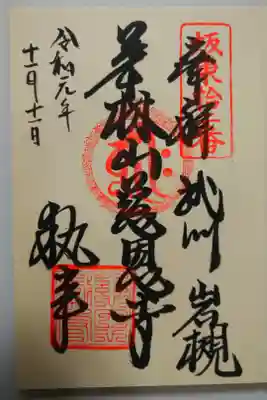 坂東拾二番
奉拝 武州 岩槻
華林山慈恩寺
令和元年
十一月十一日
執事